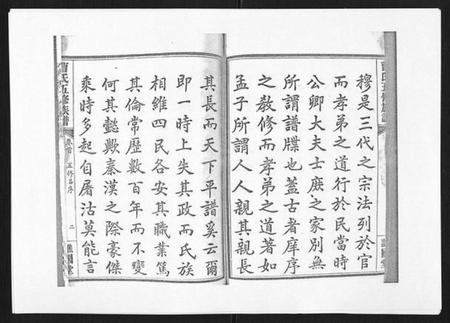 穆是三代之宗法列於官
而孝弟之道行於民當時
公卿大夫士庶之家別無
所謂譜牒也蓋古者庠序
之教修而孝弟之道著如
孟子所謂人人親其親長
其長而天下平譜奚云爾
即一時上失其政而氏族
相維四民各安其職業篤
其倫常歷數百年而不變
何其懿歟秦漢之際豪傑
乘時多起自屠沽莫能言
曹氏五修族譜
卷首
五修譜序
二